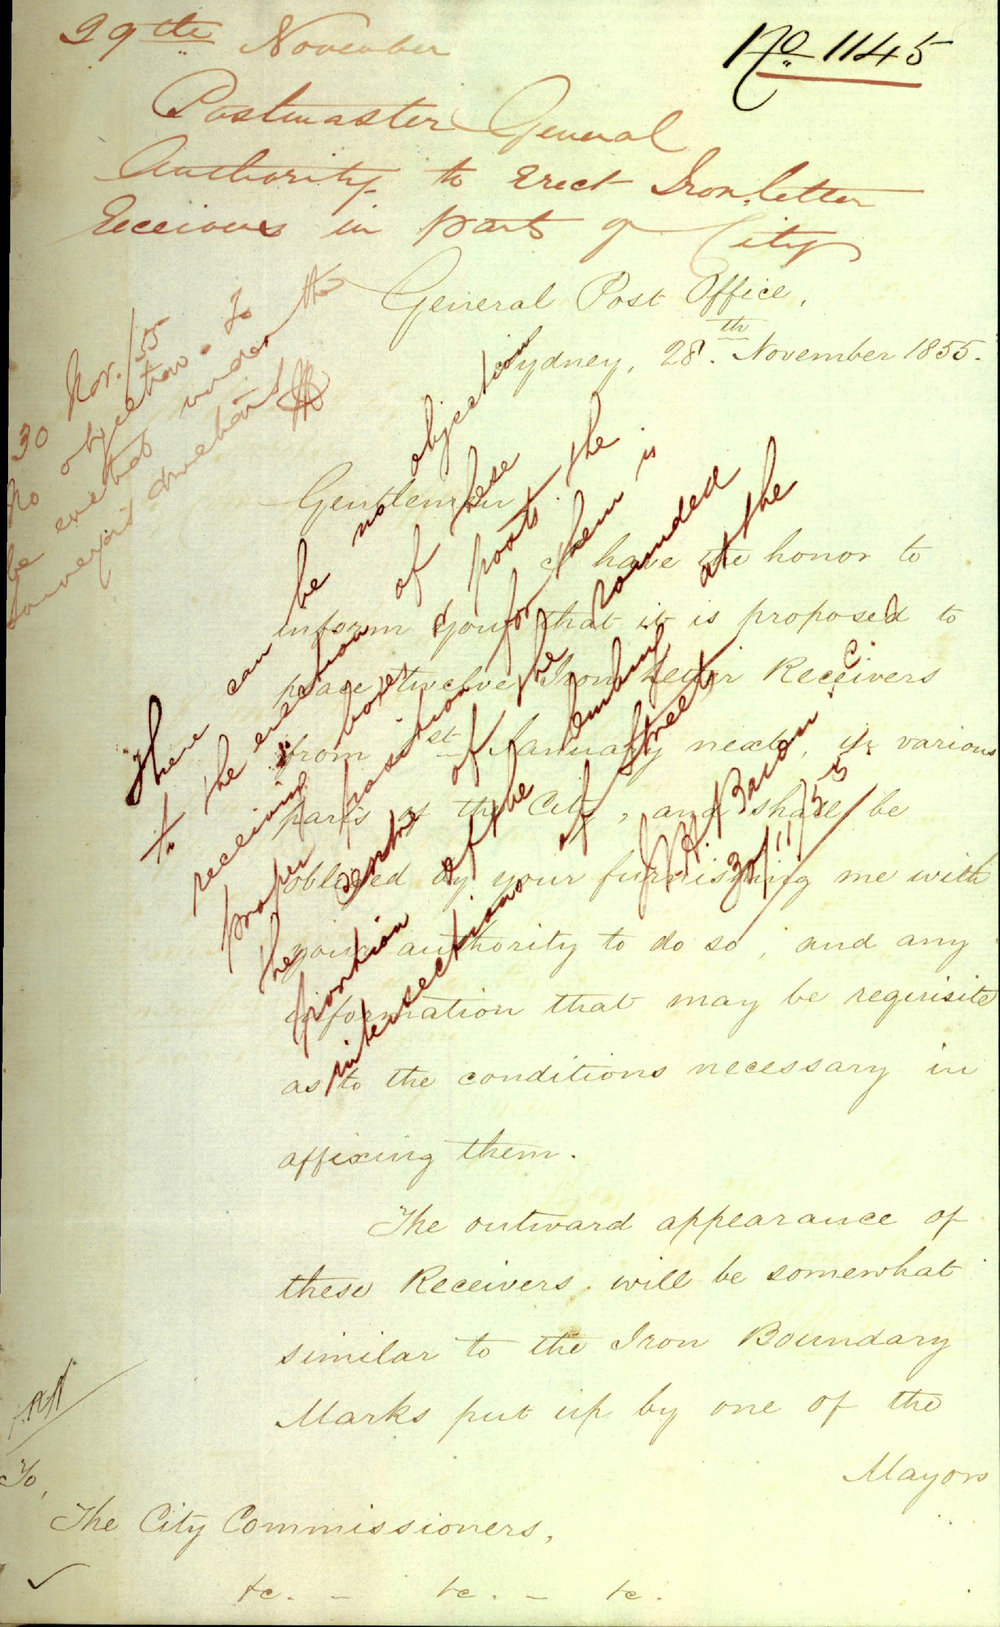 29th November
No 1145
Postmaster General
Authority to Erect Iron letter
Receivers in parts of City
General Post Office,
Sydney, 28th November 1855.
30 Nov./55
No objection. To
be erected under the
Surveyor's directions
Gentlemen
I have the honor to
inform you that it is proposed to
place twelve Iron Letter Receivers
from 1st January next, in various
parts of the City, and shall be
obliged by your furnishing me with
your authority to do so, and any
information that may be requisite
as to the conditions necessary in
affixing them.
The outward appearance of
these Receivers will be somewhat
similar to the Iron Boundary
Marks put up by one of the
Mayors
To,
The City Commissioners,
&c. - &c. - &c.
There can be no objection
to the erection of these
receiving boxes & posts the
proper position for them is
the centre of the rounded
portion of the kerbing at the
intersections of Streets
30/11/55